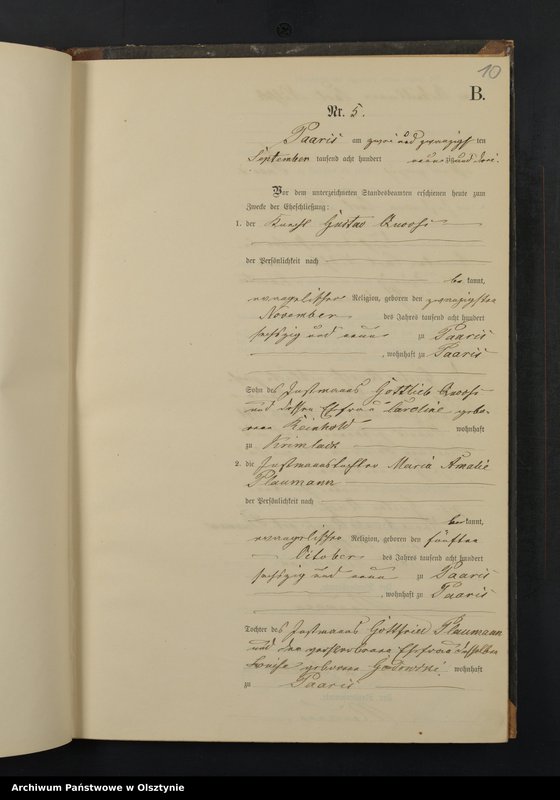 10
B.
Nr. 5.
Paaris am zwei und zwanzigsten
September tausend acht hundert neunzig und drei.
Vor dem unterzeichneten Standesbeamten erschienen heute zum
Zwecke der Eheschließung:
1. der Knecht Gustav
der Persönlichkeit nach
bekannt,
evangelischer Religion, geboren den zwanzigsten
November des Jahres tausend acht hundert
sechszig und neun zu Paaris
, wohnhaft zu Paaris
Sohn des Instmanns Gottlieb
und dessen Ehefrau Caroline gebo-
rene Reinhold wohnhaft
zu Krimlack
2. die Instmannstochter Maria Amalie
Plaumann
der Persönlichkeit nach
bekannt,
evangelischer Religion, geboren den fünften
October des Jahres tausend acht hundert
sechszig und neun zu Paaris
, wohnhaft zu Paaris
Tochter des Instmanns Gottfried Plaumann
und der verstorbenen Ehefrau desselben
Louise geborene wohnhaft
zu Paaris
Archiwum Państwowe w Olsztynie